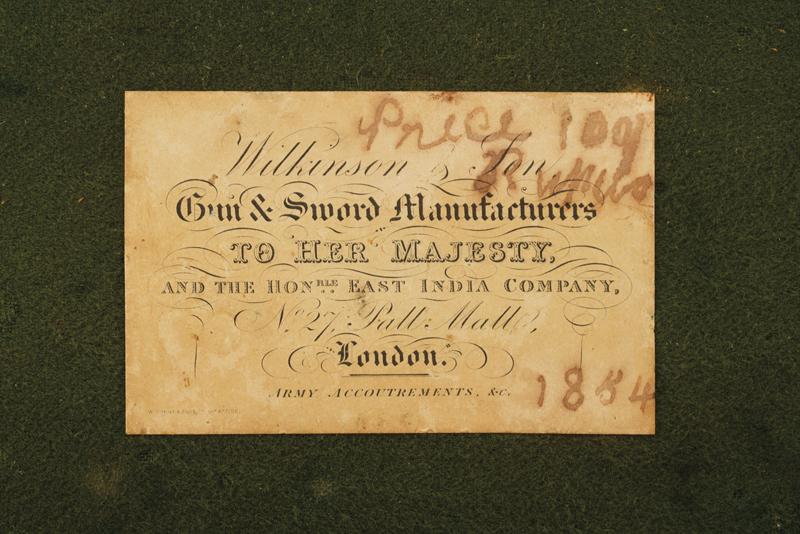 Price 109
Wilkinson & Son
Gun & Sword Manufacturers
TO HER MAJESTY,
AND THE HONRLE. EAST INDIA COMPANY,
No. 27, Pall Mall,
London.
ARMY ACCOUTREMENTS, &c.
1854